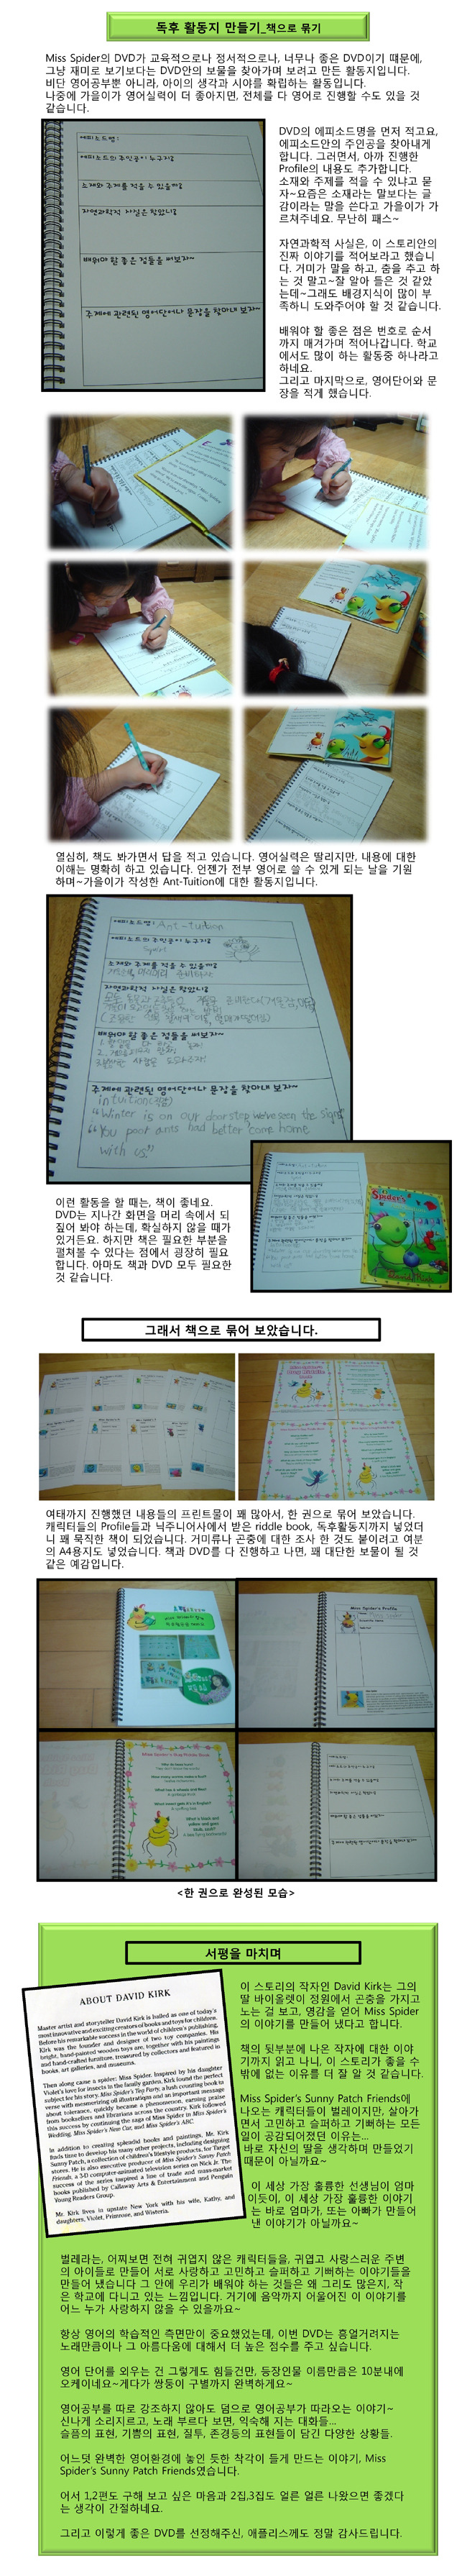 독후 활동지 만들기_책으로 묶기
Miss Spider의 DVD가 교육적으로나 정서적으로나, 너무나 좋은 DVD이기 때문에,
그냥 재미로 보기보다는 DVD안의 보물을 찾아가며 보려고 만든 활동지입니다.
비단 영어공부뿐 아니라, 아이의 생각과 시야를 확립하는 활동입니다.
나중에 가을이가 영어실력이 더 좋아지면, 전체를 다 영어로 진행할 수도 있을 것
같습니다.
에피소드명 :
에피소드의 주인공이 누구지?
소재와 주제를 적을 수 있을까?
자연과학적 사실은 있었니?
배워야 할 좋은 점들을 써보자~
주제에 관련된 영어단어나 문장을 찾아내 보자~
DVD의 에피소드명을 먼저 적고요,
에피소드안의 주인공을 찾아내게
합니다. 그러면서, 아까 진행한
Profile의 내용도 추가합니다.
소재와 주제를 적을 수 있냐고 묻
자~요즘은 소재라는 말보다는 글
감이라는 말을 쓴다고 가을이가 가
르쳐주네요. 무난히 패스~
자연과학적 사실은, 이 스토리안의
진짜 이야기를 적어보라고 했습니
다. 거미가 말을 하고, 춤을 추고 하
는 것 말고~잘 알아 들은 것 같았
는데~그래도 배경지식이 많이 부
족하니 도와주어야 할 것 같습니다.
배워야 할 좋은 점은 번호로 순서
까지 매겨가며 적어나갑니다. 학교
에서도 많이 하는 활동중 하나라고
하네요.
그리고 마지막으로, 영어단어와 문
장을 적게 했습니다.
열심히, 책도 봐가면서 답을 적고 있습니다. 영어실력은 딸리지만, 내용에 대한
이해는 명확히 하고 있습니다. 언젠가 전부 영어로 쓸 수 있게 되는 날을 기원
하며~가을이가 작성한 Ant-Tuition에 대한 활동지입니다.
에피소드명 : Ant-tuition
에피소드의 주인공이 누구지?
소재와 주제를 적을 수 있을까?
자연과학적 사실은 있었니?
배워야 할 좋은 점들을 써보자~
주제에 관련된 영어단어나 문장을 찾아내 보자~
intuition
"Winter is on our doorstep we've seen the signs"
"You poor ants had better come home
with us."
이런 활동을 할 때는, 책이 좋네요.
DVD는 지나간 화면을 머리 속에서 되
짚어 봐야 하는데, 확실하지 않을 때가
있거든요. 하지만 책은 필요한 부분을
펼쳐볼 수 있다는 점에서 굉장히 필요
합니다. 아마도 책과 DVD 모두 필요한
것 같습니다.
그래서 책으로 묶어 보았습니다.
여태까지 진행했던 내용들의 프린트물이 꽤 많아서, 한 권으로 묶어 보았습니다.
캐릭터들의 Profile들과 닉주니어사에서 받은 riddle book, 독후활동지까지 넣었더
니 꽤 묵직한 책이 되었습니다. 거미류나 곤충에 대한 조사 한 것도 붙이려고 여분
의 A4용지도 넣었습니다. 책과 DVD를 다 진행하고 나면, 꽤 대단한 보물이 될 것
같은 예감입니다.
Miss Spider's Profile
<한 권으로 완성된 모습>
서평을 마치며
ABOUT DAVID KIRK
Master artist and storyteller David Kirk is hailed as one of today's
most innovative and exciting creators of books and toys for children.
Before his remarkable success in the world of children's publishing,
Kirk was the founder and designer of two toy companies. His
bright, hand-painted wooden toys are, together with his paintings
and hand-crafted furniture, treasured by collectors and featured in
books, art galleries, and museums.
Then along came a spider: Miss Spider. Inspired by his daughter
Violet's love for insects in the family garden, Kirk found the perfect
subject for his story. Miss Spider's Tea Party, a lush counting book in
verse with mesmerizing oil illustrations and an important message
about tolerance, quickly became a phenomenon, earning praise
from booksellers and librarians across the country. Kirk followed
this success by continuing the saga of Miss Spider in Miss Spider's
Wedding, Miss Spider's New Car, and Miss Spider's ABC.
In addition to creating splendid books and paintings, Mr. Kirk
finds time to develop his many other projects, including designing
Sunny Patch, a collection of children's lifestyle products, for Target
stores. He is also executive producer of Miss Spider's Sunny Patch
Friends, a 3-D computer-animated television series on Nick Jr. The
success of the series inspired a line of trade and mass-market
books published by Callaway Arts & Entertainment and Penguin
Young Readers Group.
Mr. Kirk lives in upstate New York with his wife, Kathy, and
daughters, Violet, Primrose, and Wisteria.
이 스토리의 작자인 David Kirk는 그의
딸 바이올렛이 정원에서 곤충을 가지고
노는 걸 보고, 영감을 얻어 Miss Spider
의 이야기를 만들어 냈다고 합니다.
책의 뒷부분에 나온 작자에 대한 이야
기까지 읽고 나니, 이 스토리가 좋을 수
밖에 없는 이유를 더 잘 알 것 같습니다.
Miss Spider's Sunny Patch Friends에
나오는 캐릭터들이 벌레이지만, 살아가
면서 고민하고 슬퍼하고 기뻐하는 모든
일이 공감되어졌던 이유는...
바로 자신의 딸을 생각하며 만들었기
때문이 아닐까요~
이 세상 가장 훌륭한 선생님이 엄마
이듯이, 이 세상 가장 훌륭한 이야기
는 바로 엄마가, 또는 아빠가 만들어
낸 이야기가 아닐까요~
벌레라는, 어찌보면 전혀 귀엽지 않은 캐릭터들을, 귀엽고 사랑스러운 주변
의 아이들로 만들어 서로 사랑하고 고민하고 슬퍼하고 기뻐하는 이야기들을
만들어 냈습니다 그 안에 우리가 배워야 하는 것들은 왜 그리도 많은지, 작
은 학교에 다니고 있는 느낌입니다. 거기에 음악까지 어울어진 이 이야기를
어느 누가 사랑하지 않을 수 있을까요~
항상 영어의 학습적인 측면만이 중요했었는데, 이번 DVD는 흥얼거려지는
노래만큼이나 그 아름다움에 대해서 더 높은 점수를 주고 싶습니다.
영어 단어를 외우는 건 그렇게도 힘들건만, 등장인물 이름만큼은 10분내에
오케이네요~게다가 쌍둥이 구별까지 완벽하게요~
영어공부를 따로 강조하지 않아도 덤으로 영어공부가 따라오는 이야기~
신나게 소리지르고, 노래 부르다 보면, 익숙해 지는 대화들...
슬픔의 표현, 기쁨의 표현, 질투, 존경등의 표현들이 담긴 다양한 상황들.
어느덧 완벽한 영어환경에 놓인 듯한 착각이 들게 만드는 이야기, Miss
Spider's Sunny Patch Friends였습니다.
어서 1,2편도 구해 보고 싶은 마음과 2집,3집도 얼른 얼른 나왔으면 좋겠다
는 생각이 간절하네요.
그리고 이렇게 좋은 DVD를 선정해주신, 애플리스께도 정말 감사드립니다.